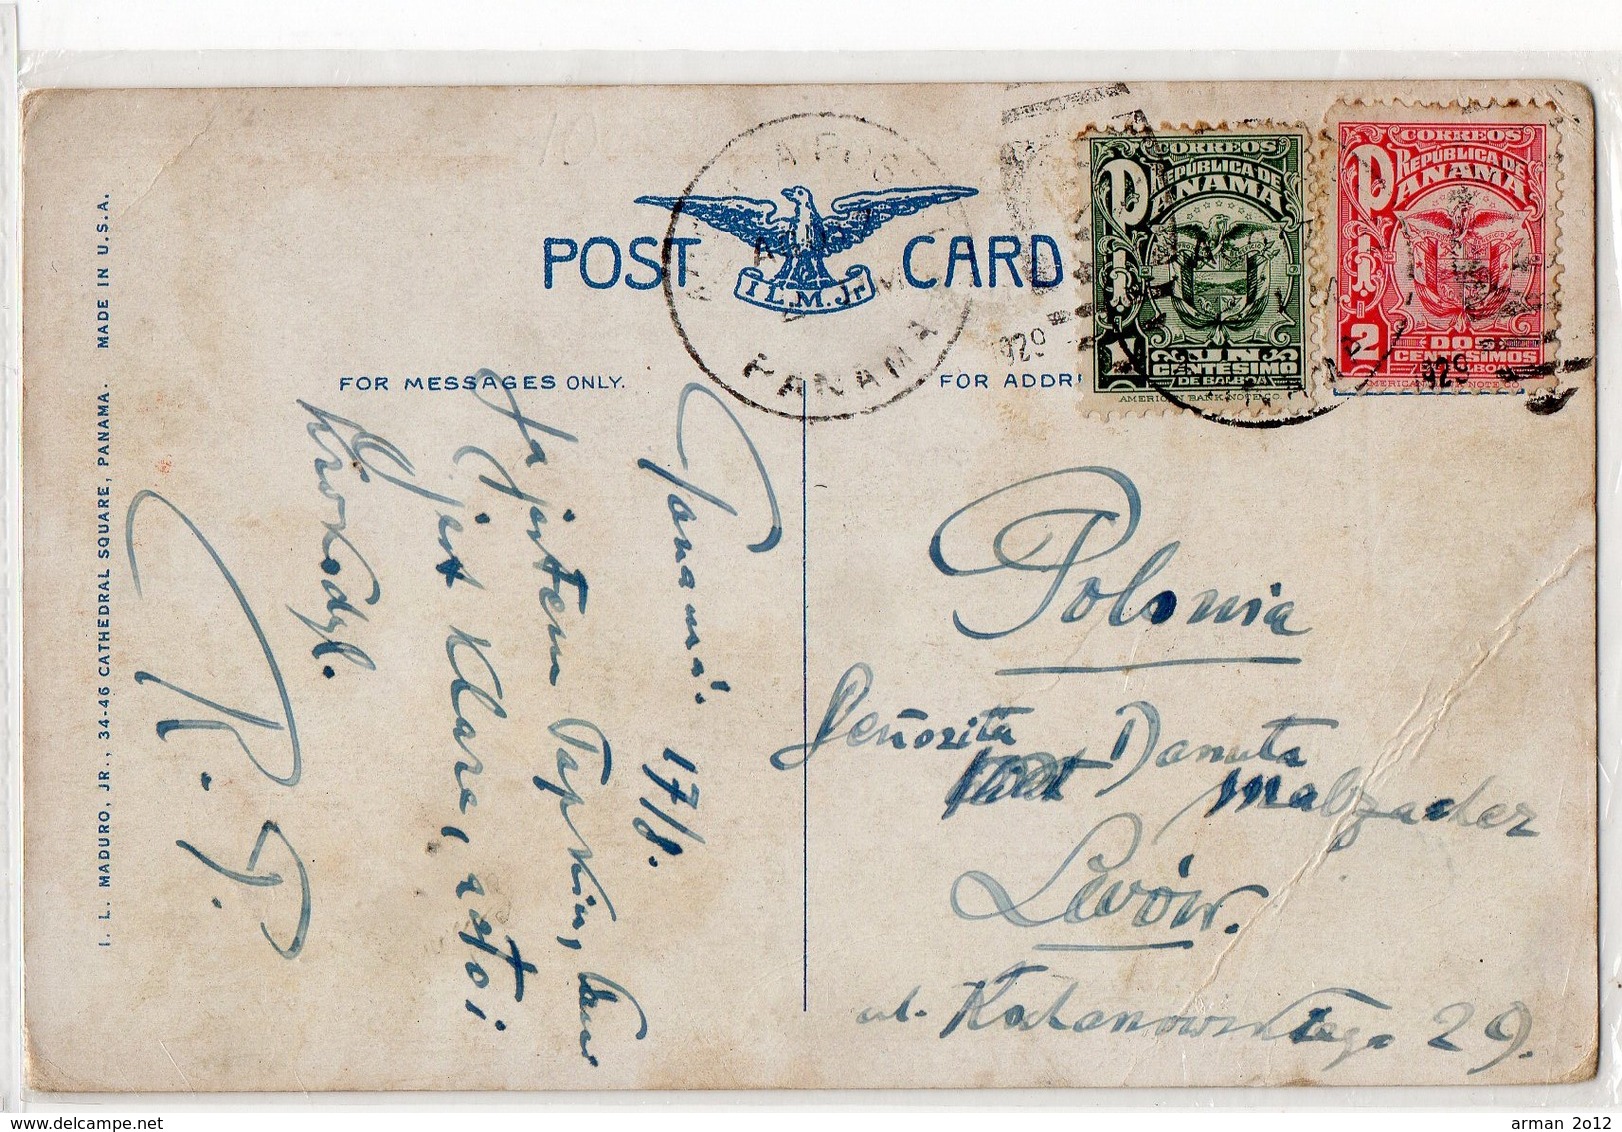 POST CARD
I.L.M.Jr
FOR MESSAGES ONLY.
FOR ADDR
I. L. MADURO, JR., 34-46 CATHEDRAL SQUARE, PANAMA. MADE IN U.S.A.
PANAMA
1929
CORREOS
REPUBLICA DE
PANAMA
1
UN
CENTESIMO
DE BALBOA
AMERICAN BANK NOTE CO.
CORREOS
REPUBLICA DE
PANAMA
2
DOS
CENTESIMOS
1929
Panama. 17/8.
Ja jestem Tapkin,
jest Klara, a to i
Krokodyl.
R. T.
Polonia
Señorita Danuta
Malzacher
Lwów.
ul. Kochanowskiego 29.
arman 2012